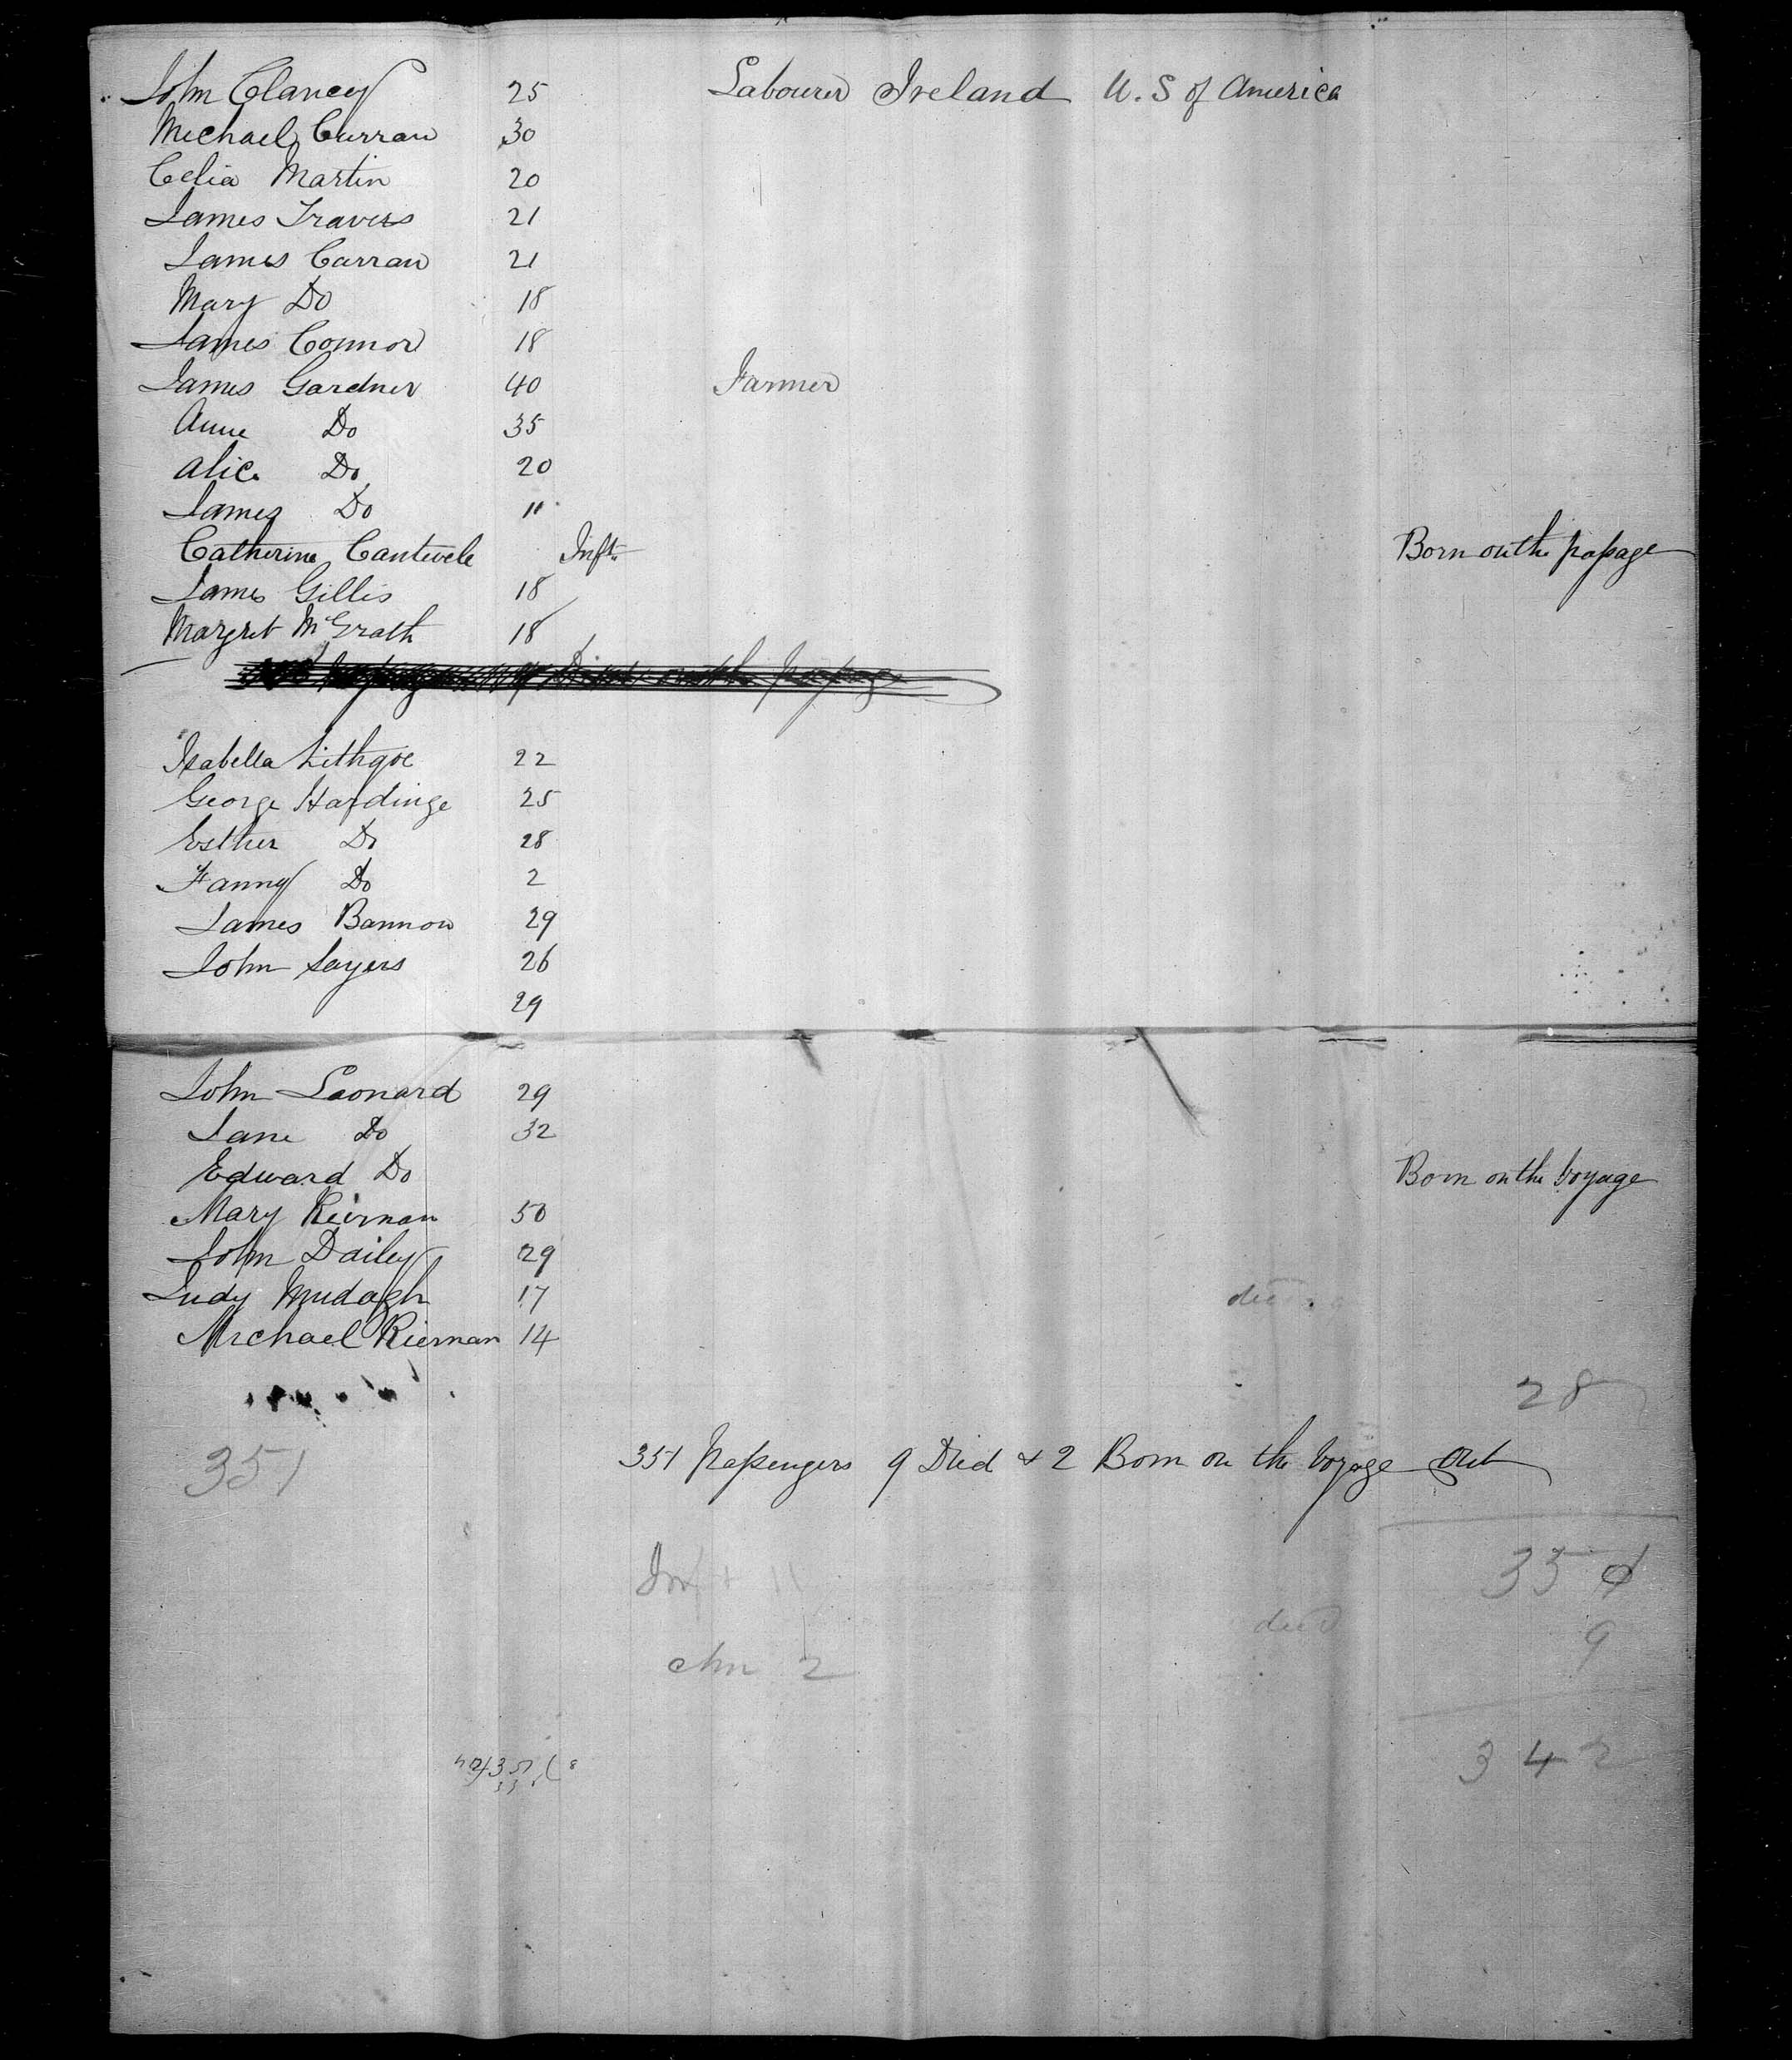 John Clancey 25 Labourer Ireland U.S of America
Michael Curran 30
Celia Martin 20
James Travers 21
James Curran 21
Mary Do 18
James Connor 18
James Gardner 40 Farmer
Anne Do 35
Alice Do 20
James Do 11
Catherine Cantwele Inft Born on the passage
James Gillis 18
Margret McGrath 18
Died on the passage
Isabella Lithgoe 22
George Hardinge 25
Esther Do 28
Fanny Do 2
James Bannon 29
John Sayers 26
29
John Leonard 29
Jane Do 32
Edward Do Born on the Voyage
Mary Kiernan 50
John Dailey 29
Judy Mudagh 17
Michael Kiernan 14
28
351 351 Passengers 9 Died & 2 Born on the Voyage out
Inft 11 351
died 9
chn 2
342